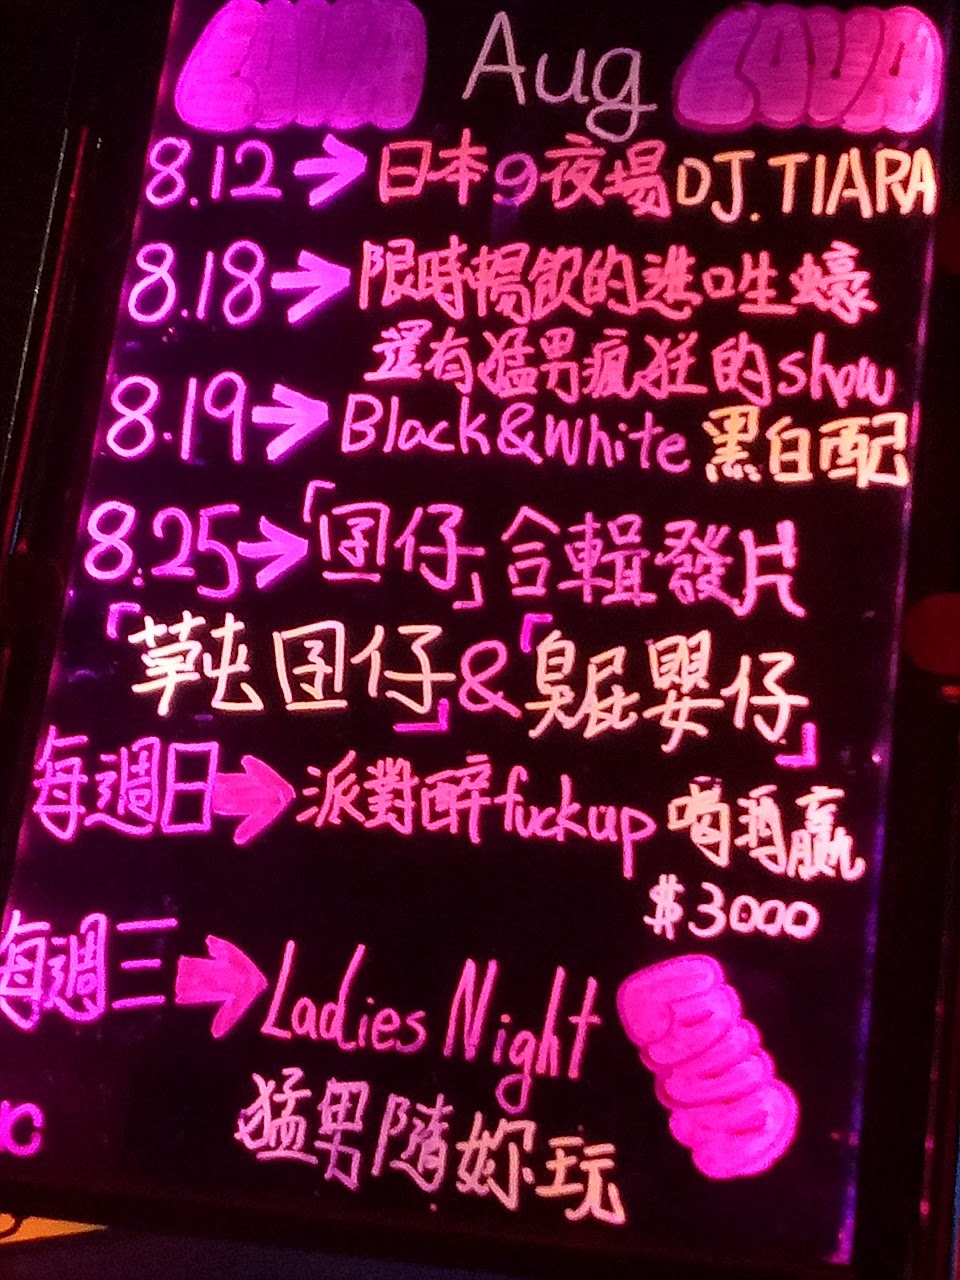 LAVA Aug LAVA
8.12→日本9夜場DJ.TIARA
8.18→限時暢飲的進口生蠔
還有猛男瘋狂的show
8.19→Black&White黑白配
8.25→「囝仔」合輯發片
囝仔」&「臭屁嬰仔」
每週日→派對醉fuckup 喝酒贏
$3000
每週三→Ladies Night
猛男隨妳玩